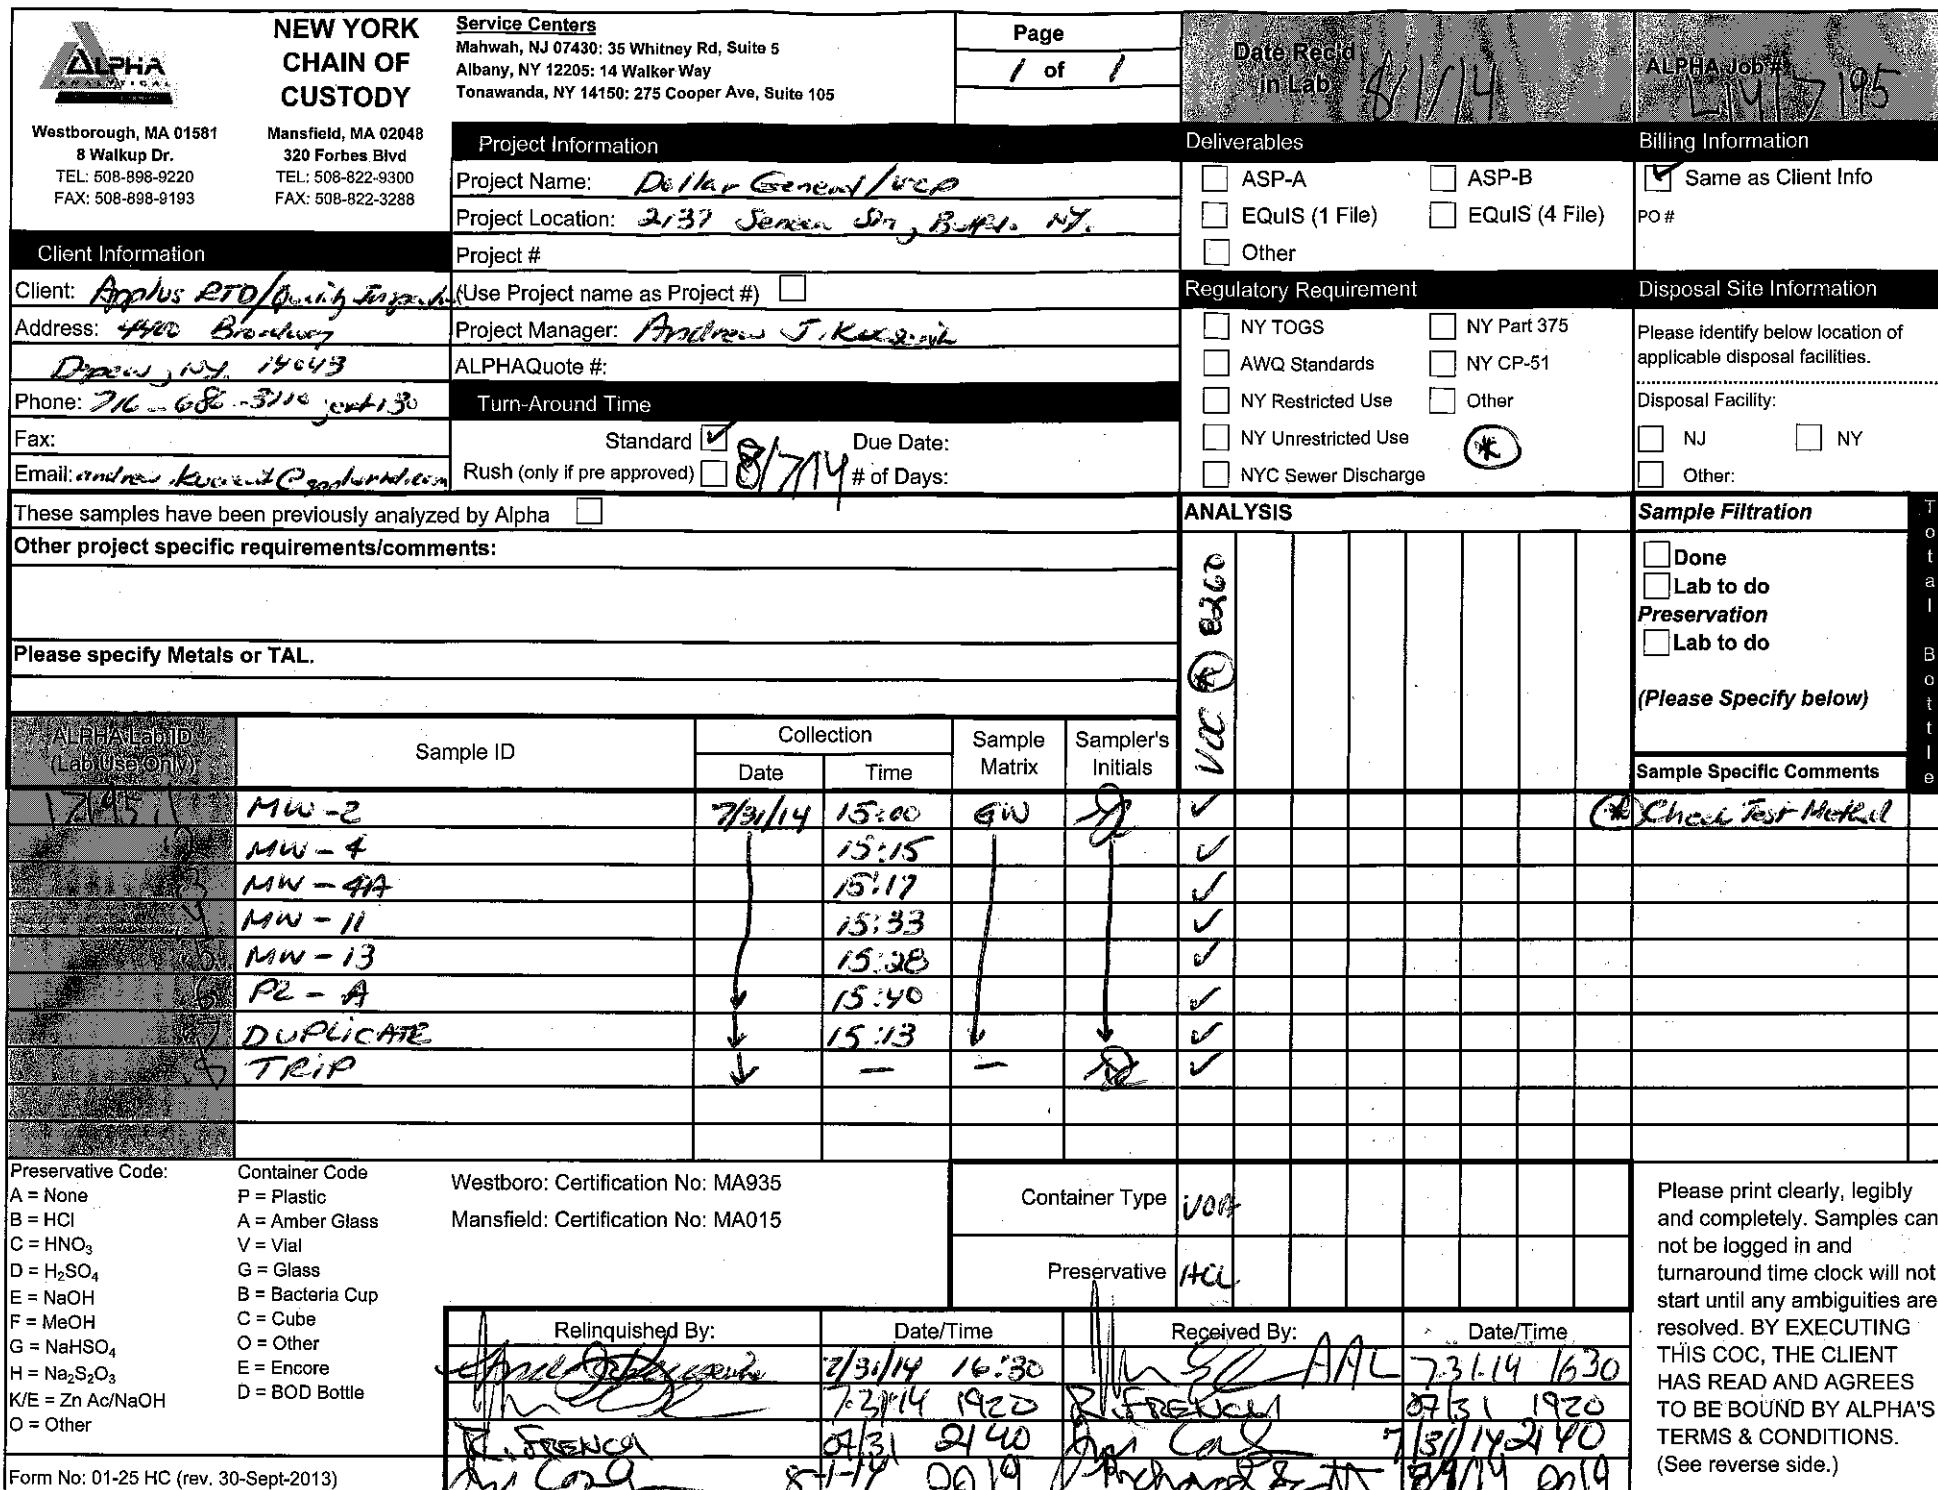 ALPHA
ANALYTICAL
NEW YORK
CHAIN OF
CUSTODY
Westborough, MA 01581
8 Walkup Dr.
TEL: 508-898-9220
FAX: 508-898-9193
Mansfield, MA 02048
320 Forbes Blvd
TEL: 508-822-9300
FAX: 508-822-3288
Service Centers
Mahwah, NJ 07430: 35 Whitney Rd, Suite 5
Albany, NY 12205: 14 Walker Way
Tonawanda, NY 14150: 275 Cooper Ave, Suite 105
Page
1 of 1
Date Rec'd
in Lab 8/1/14
ALPHA Job #
L1417195
Client Information
Client: Applus RTD/Quality
Address: Broadway
Depew, NY. 14043
Phone: 716-686-3110 ext 130
Fax:
Email:
Project Information
Project Name: Dollar General/VCP
Project Location: 2137 Seneca Str, Buffalo NY.
Project #
(Use Project name as Project #)
Project Manager: Andrew J.
ALPHAQuote #:
Turn-Around Time
Standard ✓ Due Date:
Rush (only if pre approved) 8/7/14 # of Days:
Deliverables
ASP-A ASP-B
EQuIS (1 File) EQuIS (4 File)
Other
Regulatory Requirement
NY TOGS NY Part 375
AWQ Standards NY CP-51
NY Restricted Use Other
NY Unrestricted Use *
NYC Sewer Discharge
Billing Information
✓ Same as Client Info
PO #
Disposal Site Information
Please identify below location of
applicable disposal facilities.
Disposal Facility:
NJ NY
Other:
These samples have been previously analyzed by Alpha
Other project specific requirements/comments:
Please specify Metals or TAL.
ANALYSIS
VOC * 8260
Sample Filtration
Done
Lab to do
Preservation
Lab to do
(Please Specify below)
Total Bottle
ALPHA Lab ID
(Lab Use Only)
Sample ID
Collection
Date Time
Sample
Matrix
Sampler's
Initials
Sample Specific Comments
17195 1 MW-2 7/31/14 15:00 GW ✓ * Check Test Method
2 MW-4 15:15 ✓
3 MW-4A 15:17 ✓
4 MW-11 15:33 ✓
5 MW-13 15:28 ✓
6 PZ-A 15:40 ✓
7 DUPLICATE 15:13 ✓
8 TRIP — — ✓
Preservative Code:
A = None
B = HCl
C = HNO₃
D = H₂SO₄
E = NaOH
F = MeOH
G = NaHSO₄
H = Na₂S₂O₃
K/E = Zn Ac/NaOH
O = Other
Container Code
P = Plastic
A = Amber Glass
V = Vial
G = Glass
B = Bacteria Cup
C = Cube
O = Other
E = Encore
D = BOD Bottle
Westboro: Certification No: MA935
Mansfield: Certification No: MA015
Container Type VOA
Preservative HCL
Relinquished By: Date/Time Received By: Date/Time
7/31/14 16:30 AAL 7.31.14 1630
7.31.14 1920 R. FRENCH 07/31 1920
R. FRENCH 07/31 2140 7/31/14 2140
8-1-14 0019 0019
Please print clearly, legibly
and completely. Samples can
not be logged in and
turnaround time clock will not
start until any ambiguities are
resolved. BY EXECUTING
THIS COC, THE CLIENT
HAS READ AND AGREES
TO BE BOUND BY ALPHA'S
TERMS & CONDITIONS.
(See reverse side.)
Form No: 01-25 HC (rev. 30-Sept-2013)